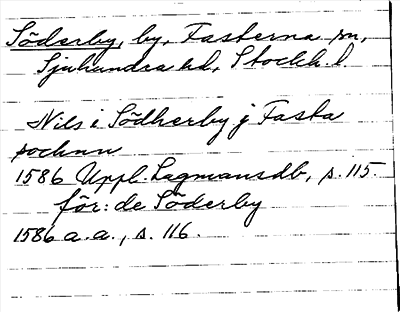 Söderby, by, Fasterna sn,
Sjuhundra hd, Stockh. l.
Nils i Södherby j Fasta
sochnn
1586 Uppl. Lagmansdb, s. 115.
för: de Söderby
1586 a.a., s. 116.